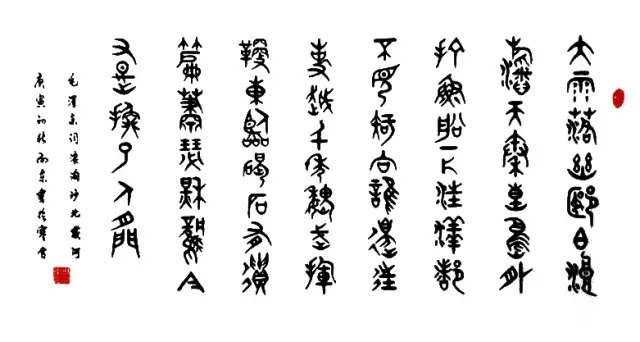 大雨落幽燕白浪
滔天秦皇島外
打魚船一片汪洋都
不見知向誰邊往
事越千年魏武揮
鞭東臨碣石有遺
篇蕭瑟秋風今
又是換了人間
毛澤東詞浪淘沙北戴河
庚寅初秋東書於寒舍